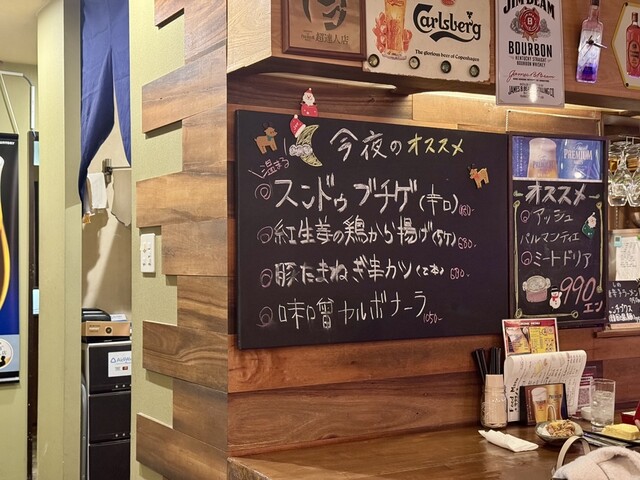 超達人店
Carlsberg
The glorious beer of Copenhagen
JIM BEAM
BOURBON
KENTUCKY STRAIGHT
BOURBON WHISKEY
今夜のオススメ
温まる
スンドゥブチゲ(辛口)
紅生姜の鶏から揚げ(5ヶ)680.-
豚たまねぎ串カツ(2本)680.-
味噌カルボナーラ
1050-
PREMIUM
オススメ
アッシュ
パルマンティエ
ミートドリア
990エン